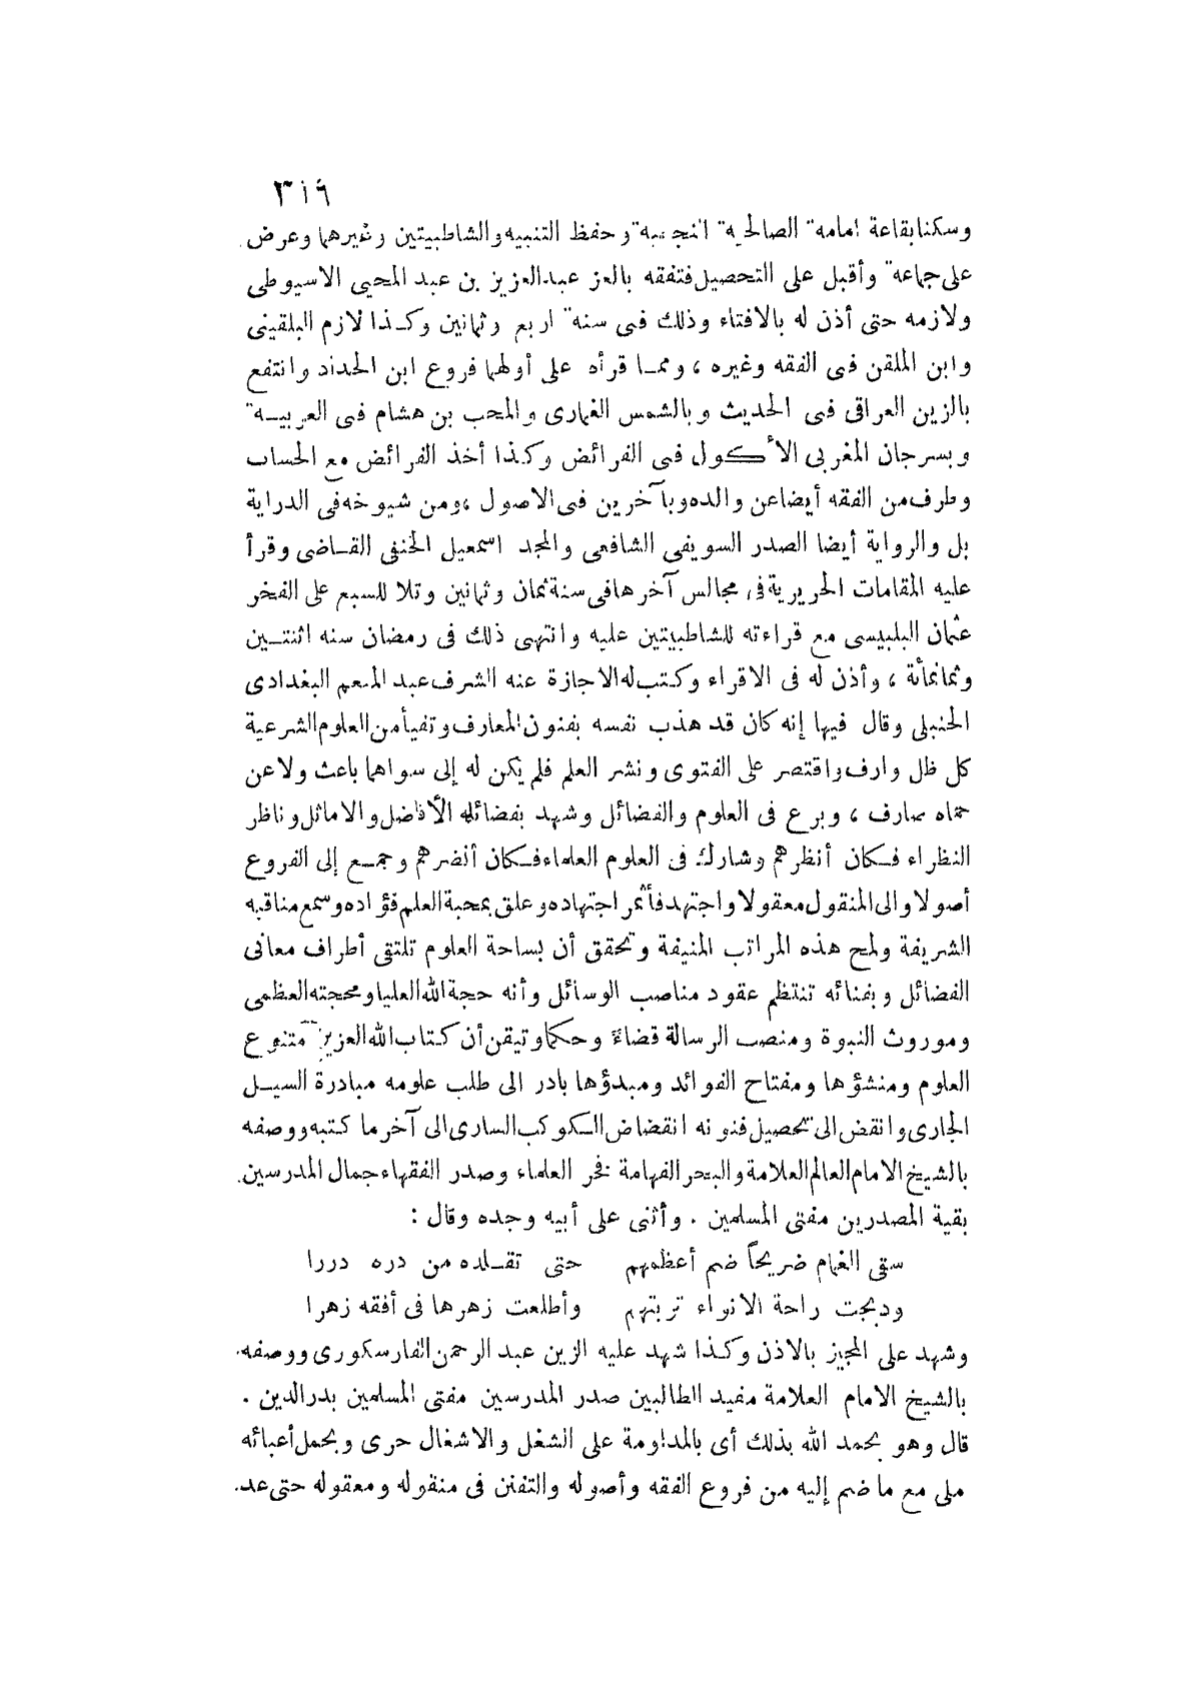 ٣١٩
وسكنا بقاعة امامة الصالحية النجمية وحفظ التنبيه والشاطبيتين وغيرهما وعرض
على جماعة وأقبل على التحصيل فتفقه بالعز عبد العزيز بن عبد المحيى الاسيوطى
ولازمه حتى أذن له بالافتاء وذلك فى سنة اربع وثمانين وكذا لازم البلقينى
وابن الملقن فى الفقه وغيره ، ومما قرأه على أولهما فروع ابن الحداد وانتفع
بالزين العراقى فى الحديث وبالشمس الغمارى والمحب بن هشام فى العربية
وبسرجان المغربى الأكول فى الفرائض وكذا أخذ الفرائض مع الحساب
وطرف من الفقه أيضا عن والده وبآخرين فى الاصول ، ومن شيوخه فى الدراية
بل والرواية أيضا الصدر السويفى الشافعى والمجد اسمعيل الحنفى القاضى وقرأ
عليه المقامات الحريرية فى مجالس آخرها فى سنة ثمان وثمانين وتلا للسبع على الفخر
عثمان البلبيسى مع قراءته للشاطبيتين عليه وانتهى ذلك فى رمضان سنه اثنتين
وثمانمائة ، وأذن له فى الاقراء وكتب له الاجازة عنه الشرف عبد المنعم البغدادى
الحنبلى وقال فيها إنه كان قد هذب نفسه بفنون المعارف وتفيأ من العلوم الشرعية
كل ظل وارف واقتصر على الفتوى ونشر العلم فلم يكن له إلى سواهما باعث ولا عن
حماه صارف ، وبرع فى العلوم والفضائل وشهد بفضائله الأفاضل والاماثل وناظر
النظراء فكان أنظرهم وشارك فى العلوم العلماء فكان أنضرهم وجمع إلى الفروع
أصولا والى المنقول معقولا واجتهد فأثمر اجتهاده وعلق بمحبة العلم فؤاده وسمع مناقبه
الشريفة ولمح هذه المراتب المنيفة وتحقق أن بساحة العلوم تلتقى أطراف معانى
الفضائل وبفنائه تنتظم عقود مناصب الوسائل وأنه حجة الله العليا ومحجته العظمى
وموروث النبوة ومنصب الرسالة قضاءً وحكما وتيقن أن كتاب الله العزيز متنوع
العلوم ومنشؤها ومفتاح الفوائد ومبدؤها بادر الى طلب علومه مبادرة السيل
الجارى وانقض الى تحصيل فنونه انقضاض الكوكب السارى الى آخر ما كتبه ووصفه
بالشيخ الامام العالم العلامة والبحر الفهامة فخر العلماء وصدر الفقهاء جمال المدرسين
بقية المصدرين مفتى المسلمين . وأثنى على أبيه وجده وقال :
سقى الغمام ضريحاً ضم أعظمهم حتى تقلده من دره دررا
ودبجت راحة الانواء تربتهم وأطلعت زهرها فى أفقه زهرا
وشهد على المجيز بالاذن وكذا شهد عليه الزين عبد الرحمن الفارسكورى ووصفه
بالشيخ الامام العلامة مفيد الطالبين صدر المدرسين مفتى المسلمين بدر الدين .
قال وهو بحمد الله بذلك أى بالمداومة على الشغل والاشغال حرى وبحمل أعبائه
ملى مع ما ضم إليه من فروع الفقه وأصوله والتفنن فى منقوله ومعقوله حتى عد